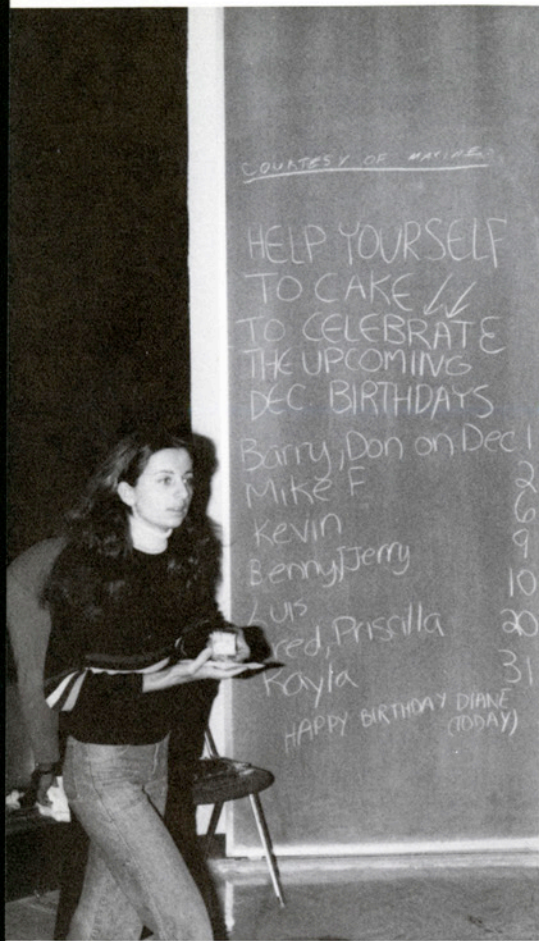 COURTESY OF MAXINE
HELP YOURSELF
TO CAKE
TO CELEBRATE
THE UPCOMING
DEC BIRTHDAYS
Barry, Don on Dec 1
Mike F 2
Kevin 6
Benny, Jerry 9
Luis 10
red, Priscilla 20
Kayla 31
HAPPY BIRTHDAY DIANE
(TODAY)